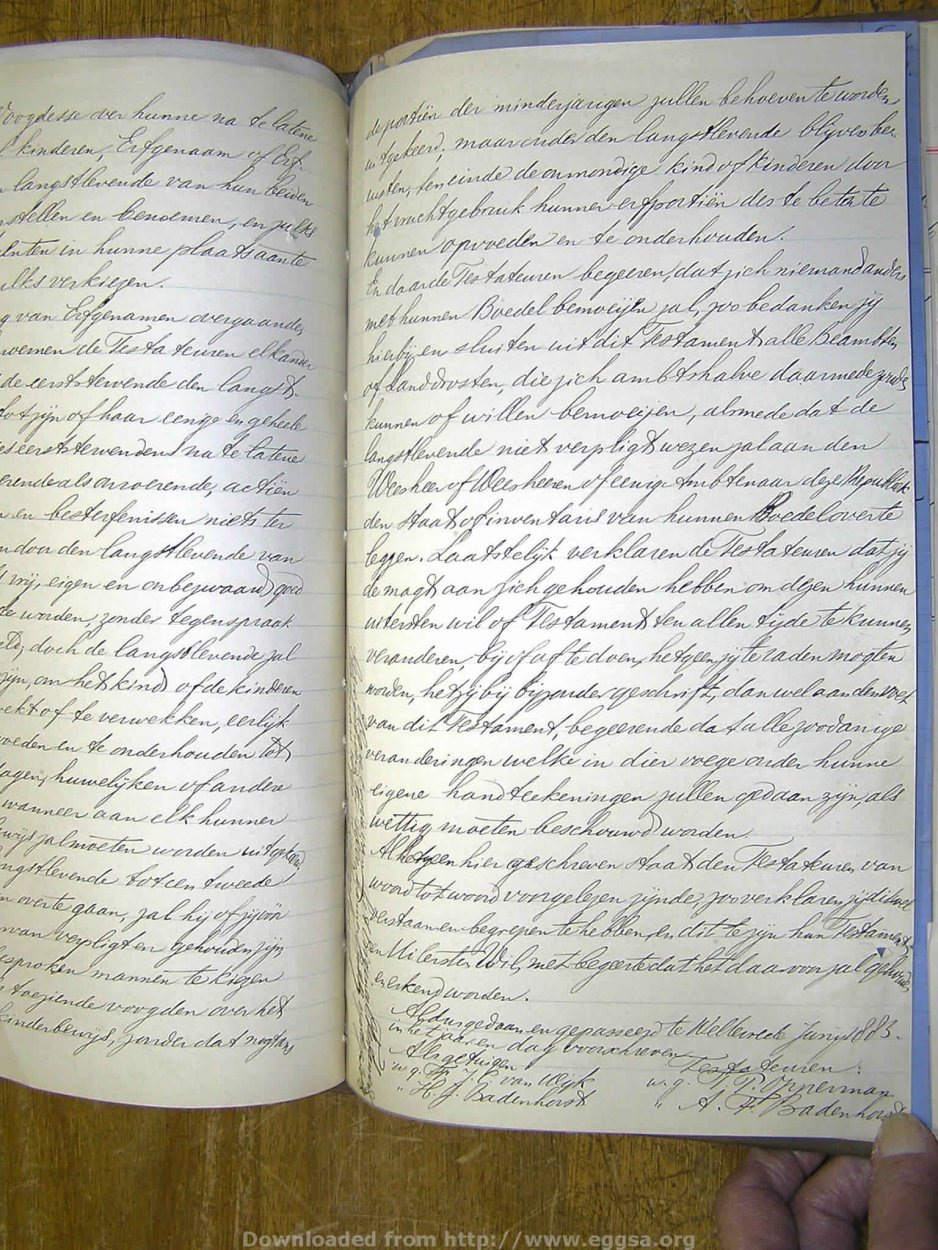 Voogdesse over hunne na te latene
kinderen, Erfgenaam of Erf
langstlevende van hun beiden
stellen en benoemen, en zulks
in hunne plaats aan te
ulks verkiezen.
van Erfgenamen overgaande,
noemen de Testateuren elkander
de eerststervende den langst
tot zijn of haar eenige en geheele
eerststervenden na te latene
erende als onroerende, actiën
en en besterfenissen niets ter
door den langstlevende van
vrij, eigen en onbezwaard goed
te worden, zonder tegenspraak
doch de langstlevende zal
zijn, om het kind of de kinderen
wekt of te verwekken, eerlijk
voeden en te onderhouden tot
dagen, huwelijken of andere
wanneer aan elk hunner
bewijs zal moeten worden uitgekeerd,
langstlevende tot een tweede
overte gaan, zal hij of zij vóór
van verpligt en gehouden zijn
esproken mannen te kiezen
toeziende voogden over het
kinderbewijs, zonder dat nogtans
de portiën der minderjarigen zullen behoeven te worden
uitgekeerd, maar onder den langstlevende blijven be-
rusten, ten einde de onmondige kind of kinderen door
het vruchtgebruik hunner erfportiën des te beter te
kunnen opvoeden en te onderhouden.
En daar de Testateuren begeeren, dat zich niemand anders
met hunnen Boedel bemoeijen zal, zoo bedanken zij
hierbij en sluiten uit dit Testament alle Beambten
of Landdrosten, die zich ambtshalve daarmede zouden
kunnen of willen bemoeijen, alsmede dat de
langstlevende niet verpligt wezen zal aan den
Weesheer of Weesheeren of eenige Ambtenaar dezer Republiek
den staat of inventaris van hunnen Boedel over te
leggen. Laatstelijk verklaren de Testateuren dat zij
de magt aan zich gehouden hebben om dezen hunnen
uitersten wil of Testament ten allen tijde te kunnen
veranderen, bij of af te doen, hetgeen zij te raden mogten
worden, hetzij bij bijzonder geschrift, dan wel aan den voet
van dit Testament, begeerende dat alle zoodanige
veranderingen welke in dier voege onder hunne
eigene handteekeningen zullen gedaan zijn, als
wettig moeten beschouwd worden.
Al hetgeen hier geschreven staat den Testateuren van
woord tot woord voorgelezen zijnde, zoo verklaren zij dit wel
verstaan en begrepen te hebben, en dit te zijn hun Testament
en Uitersten Wil, met begeerte dat het daarvoor zal gehouden
en erkend worden.
Aldus gedaan en gepasseerd te Welterede Junij 1883.
in het jaar en dag voorschreven.
Als getuigen Testateuren:
w.g. van Wijk w.g. T. P. Opperman
" H. J. Badenhorst " A. F. Badenhorst
Downloaded from http://www.eggsa.org